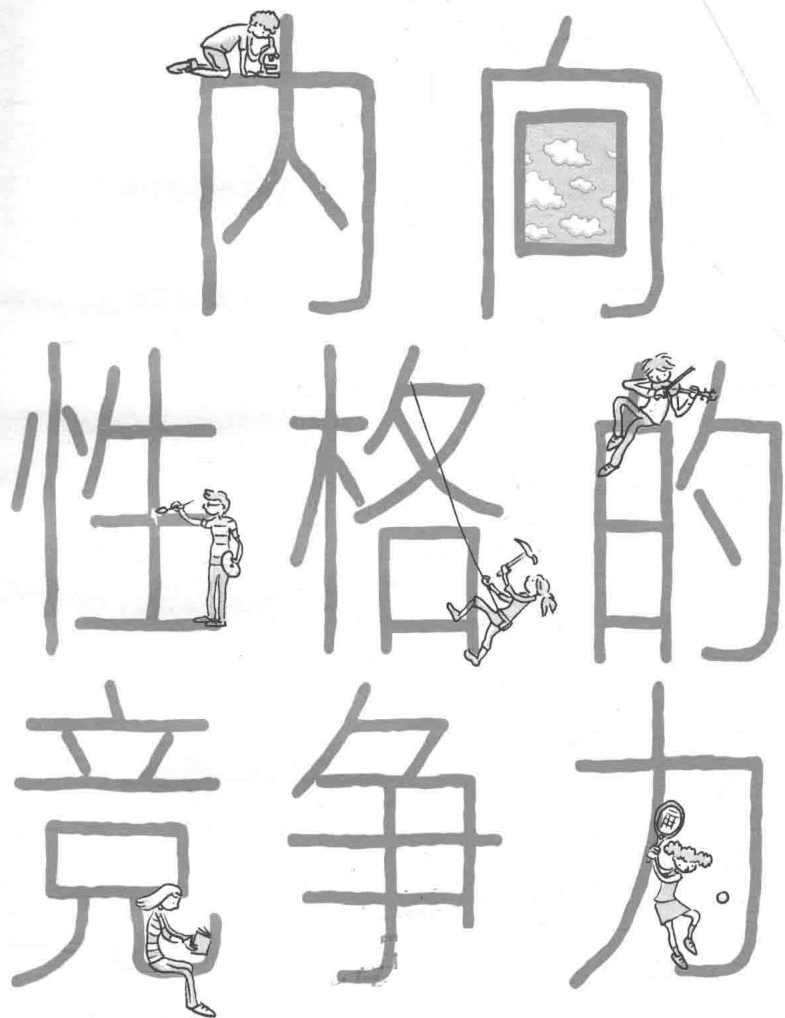 内向
性格的
竞争力